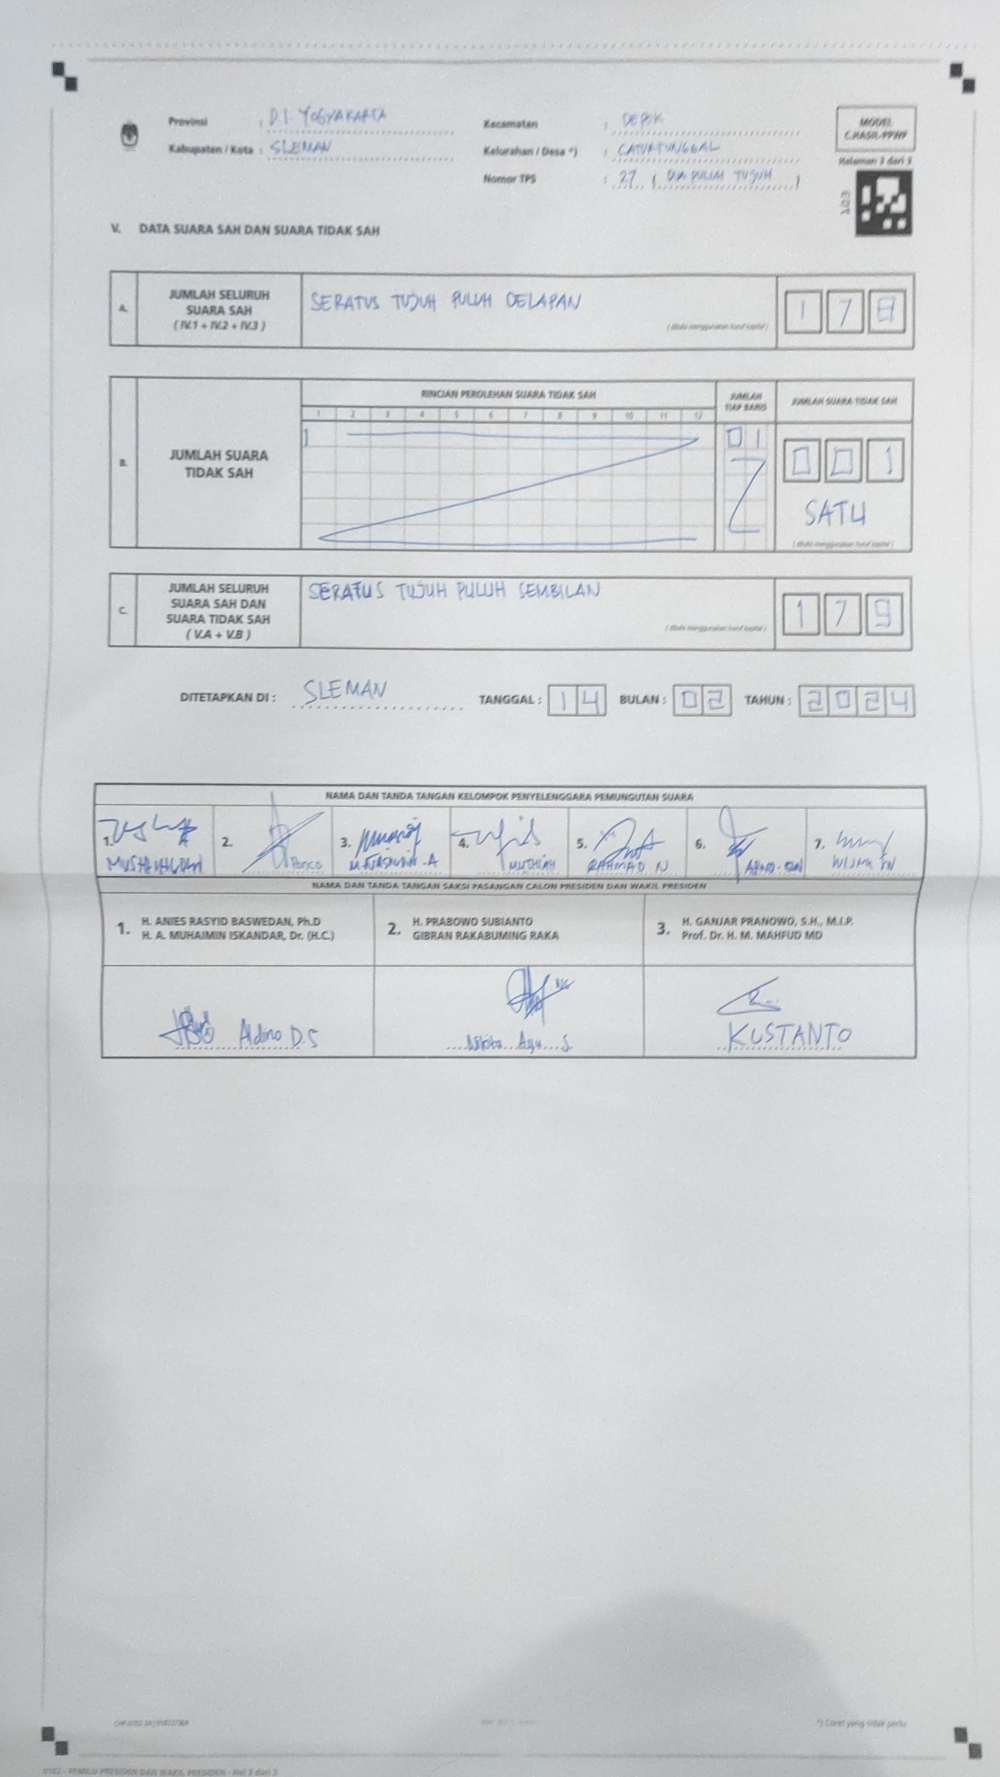 Provinsi : D.I. YOGYAKARTA
Kabupaten / Kota : SLEMAN
Kecamatan : DEPOK
Kelurahan / Desa *) : CATURTUNGGAL
Nomor TPS : 27 ( DUA PULUH TUJUH )
MODEL
C.HASIL-PPWP
Halaman 3 dari 3
103
V. DATA SUARA SAH DAN SUARA TIDAK SAH
A. JUMLAH SELURUH
SUARA SAH
( IV.1 + IV.2 + IV.3 )
SERATUS TUJUH PULUH DELAPAN
( ditulis menggunakan huruf kapital )
1 7 8
B. JUMLAH SUARA
TIDAK SAH
RINCIAN PEROLEHAN SUARA TIDAK SAH
1 2 3 4 5 6 7 8 9 10 11 12
JUMLAH
TIAP BARIS
01
JUMLAH SUARA TIDAK SAH
0 0 1
SATU
( ditulis menggunakan huruf kapital )
C. JUMLAH SELURUH
SUARA SAH DAN
SUARA TIDAK SAH
( V.A + V.B )
SERATUS TUJUH PULUH SEMBILAN
( ditulis menggunakan huruf kapital )
1 7 9
DITETAPKAN DI : SLEMAN TANGGAL : 14 BULAN : 02 TAHUN : 2024
NAMA DAN TANDA TANGAN KELOMPOK PENYELENGGARA PEMUNGUTAN SUARA
1.
2. Panco
3.
4. MUTHIAH
5. RAHMAD N
6.
7.
NAMA DAN TANDA TANGAN SAKSI PASANGAN CALON PRESIDEN DAN WAKIL PRESIDEN
1. H. ANIES RASYID BASWEDAN, Ph.D
H. A. MUHAIMIN ISKANDAR, Dr. (H.C.)
2. H. PRABOWO SUBIANTO
GIBRAN RAKABUMING RAKA
3. H. GANJAR PRANOWO, S.H., M.I.P.
Prof. Dr. H. M. MAHFUD MD
Aldino D.S
Ayu S
KUSTANTO
*) Coret yang tidak perlu
0102 - PEMILU PRESIDEN DAN WAKIL PRESIDEN - Hal 3 dari 3